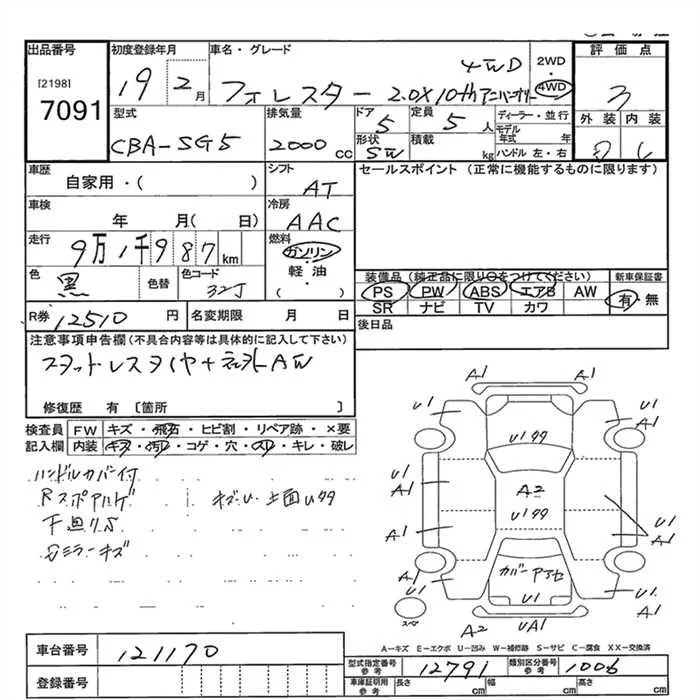 出品番号 初度登録年月 車名・グレード 評価点
[2198] 7091
19 2月 フォレスター 2.0X 10th アニバーサリー 4WD 2WD 4WD 3
型式 排気量 ドア 定員 ディーラー・並行 外装 内装
CBA-SG5 2000cc 5 5人 モデル年式 年
形状 SW 積載 kg ハンドル 左・右
車歴 シフト セールスポイント (正常に機能するものに限ります)
自家用・( ) AT
車検 冷房
年 月( 日) AAC
走行 燃料
9万1千987km ガソリン・軽油・( )
色 黒 色替 色コード 32J
装備品(純正品に限り○をつけてください) 新車保証書
PS PW ABS エアB AW 有・無
SR ナビ TV カワ
R券 12510円 名変期限 月 日
後日品
注意事項申告欄(不具合内容等は具体的に記入して下さい)
スタットレスタイヤ+ AW
修復歴 有 [箇所 ]
検査員 FW キズ・飛石・ヒビ割・リペア跡・×要
記入欄 内装 キズ・汚れ・コゲ・穴・スレ・キレ・破レ
ハンドルカバー付
Rスポアルゲ
キズU 上面Uタタ
下廻りS
ミラーキズ
A1
U1 U1
A1 Uタタ A1
U1
A1 A2
A1 Uタタ U1
A1
A1 カバーアワセ U1
U1 U1 A1
スペア
A2 UA1
A-キズ E-エクボ U-凹み W-補修跡 S-サビ C-腐食 XX-交換済
車台番号 121170
登録番号
型式指定番号 参考 12791 類別区分番号 参考 1006
車庫証明用 参考 長さ cm 幅 cm 高さ cm